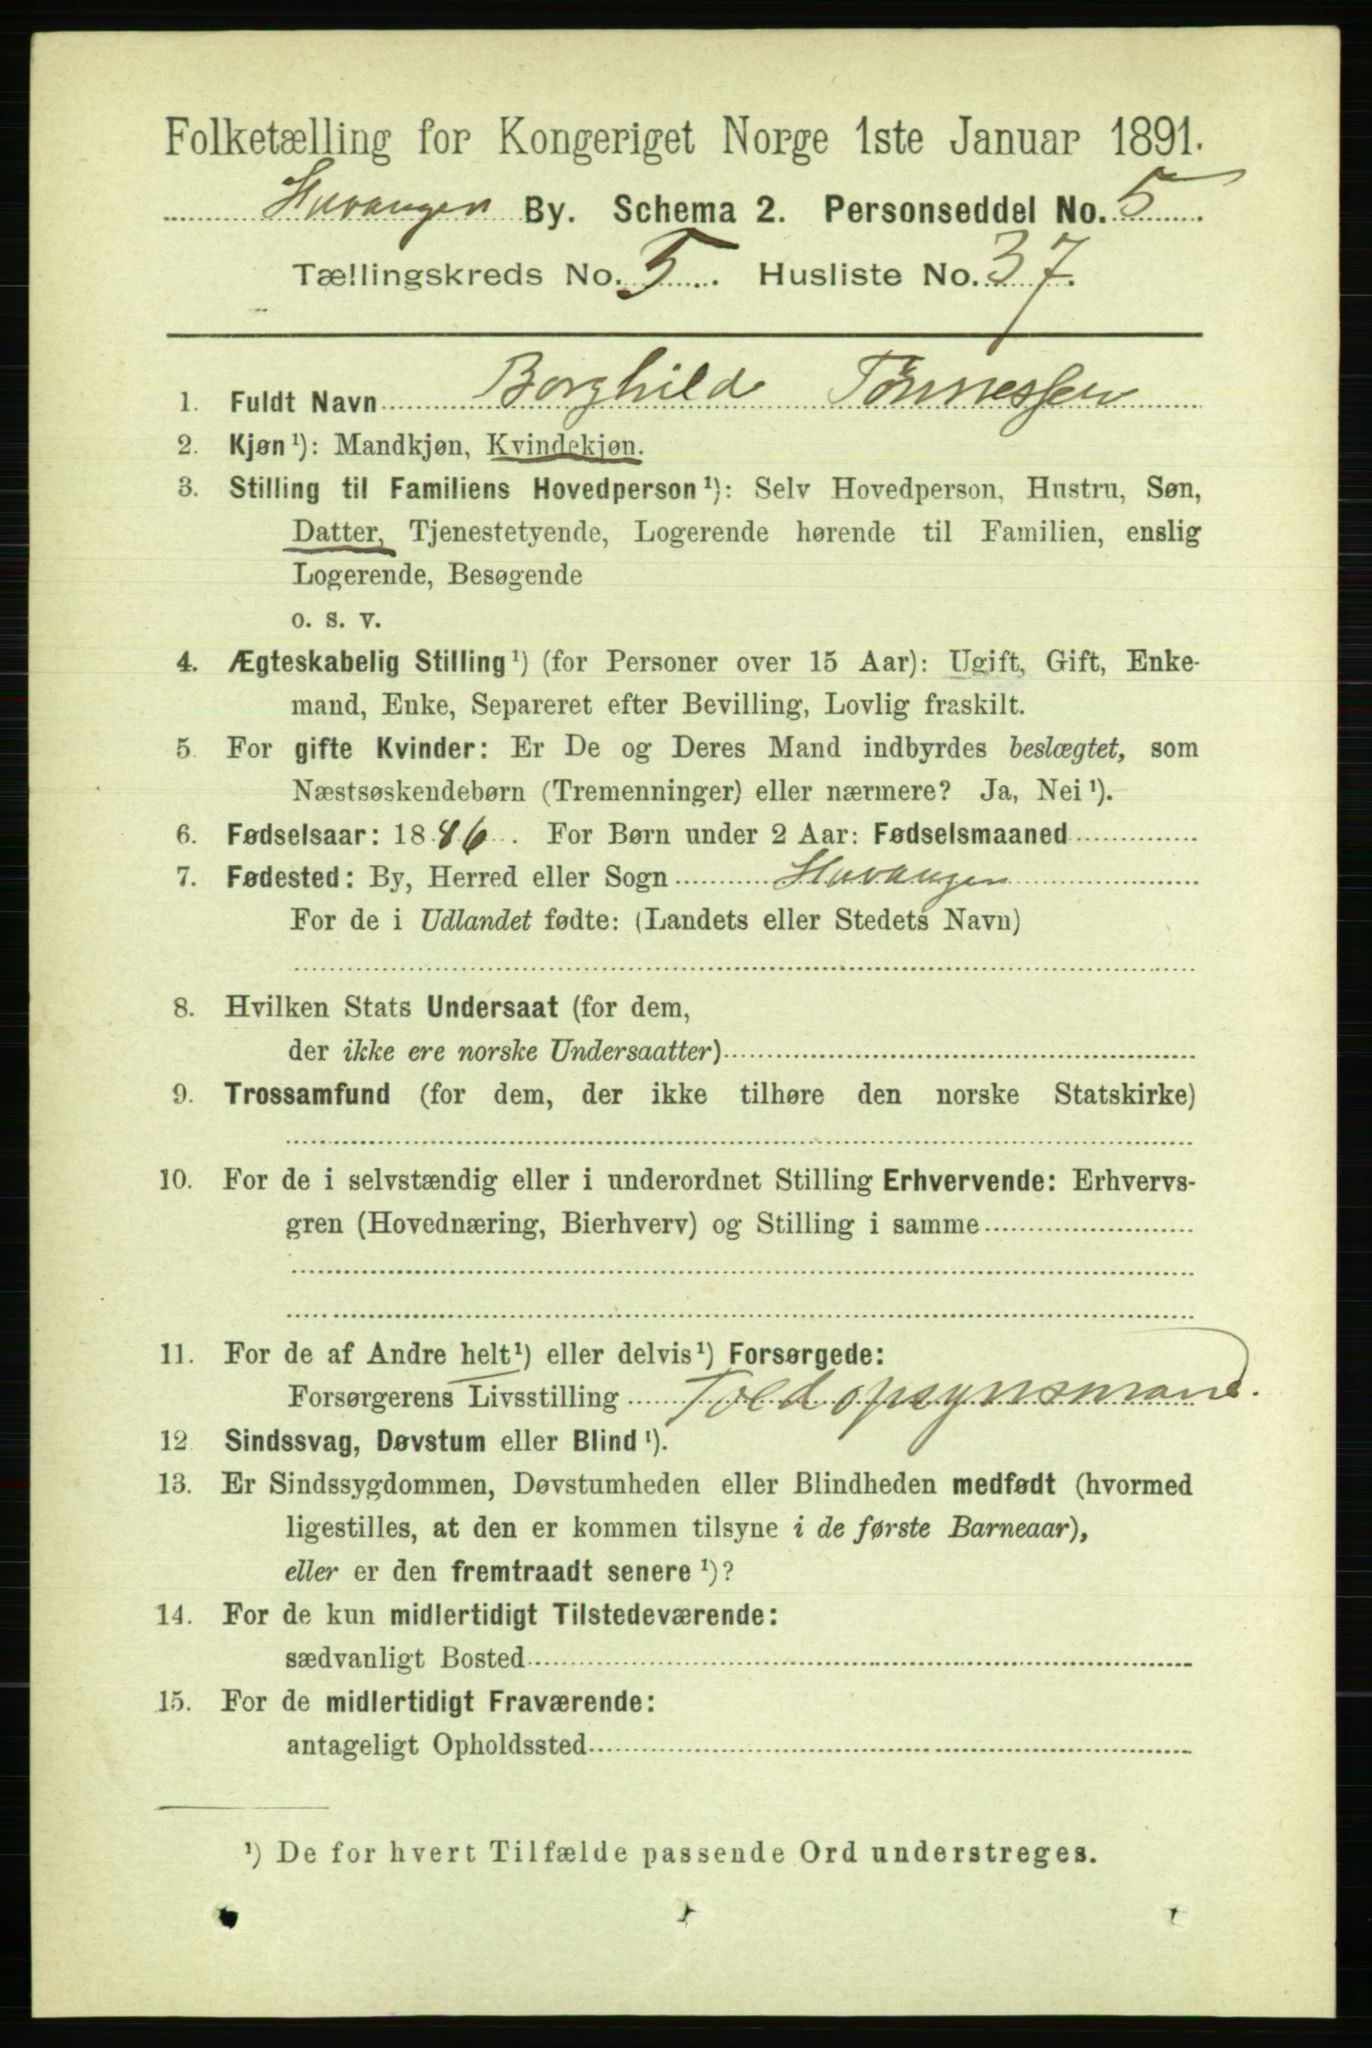 Folketælling for Kongeriget Norge 1ste Januar 1891.
Stavanger By. Schema 2. Personseddel No. 5
Tællingskreds No. 5. Husliste No. 37.
1. Fuldt Navn Borghild Tønnessen
2. Kjøn¹): Mandkjøn, Kvindekjøn.
3. Stilling til Familiens Hovedperson¹): Selv Hovedperson, Hustru, Søn,
Datter, Tjenestetyende, Logerende hørende til Familien, enslig
Logerende, Besøgende
o. s. v.
4. Ægteskabelig Stilling¹) (for Personer over 15 Aar): Ugift, Gift, Enke-
mand, Enke, Separeret efter Bevilling, Lovlig fraskilt.
5. For gifte Kvinder: Er De og Deres Mand indbyrdes beslægtet, som
Næstsøskendebørn (Tremenninger) eller nærmere? Ja, Nei¹).
6. Fødselsaar: 1886. For Børn under 2 Aar: Fødselsmaaned
7. Fødested: By, Herred eller Sogn Stavanger
For de i Udlandet fødte: (Landets eller Stedets Navn)
8. Hvilken Stats Undersaat (for dem,
der ikke ere norske Undersaatter)
9. Trossamfund (for dem, der ikke tilhøre den norske Statskirke)
10. For de i selvstændig eller i underordnet Stilling Erhvervende: Erhvervs-
gren (Hovednæring, Bierhverv) og Stilling i samme
11. For de af Andre helt¹) eller delvis¹) Forsørgede:
Forsørgerens Livsstilling Toldopsynsmand.
12 Sindssvag, Døvstum eller Blind¹).
13. Er Sindssygdommen, Døvstumheden eller Blindheden medfødt (hvormed
ligestilles, at den er kommen tilsyne i de første Barneaar),
eller er den fremtraadt senere¹)?
14. For de kun midlertidigt Tilstedeværende:
sædvanligt Bosted
15. For de midlertidigt Fraværende:
antageligt Opholdssted
¹) De for hvert Tilfælde passende Ord understreges.